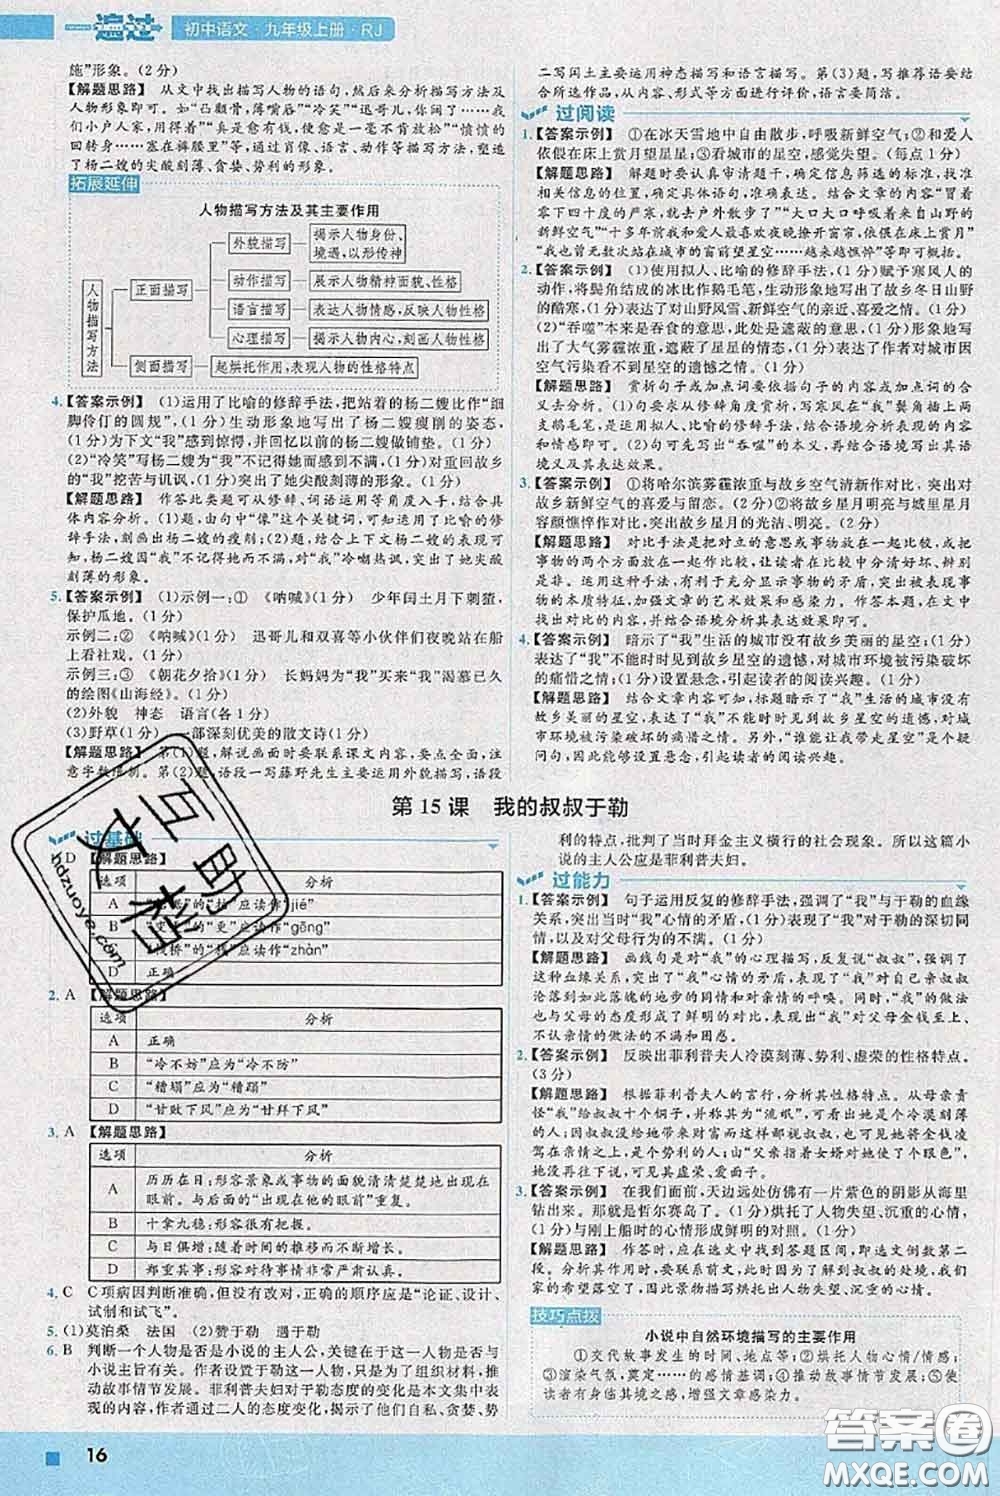 一遍过 初中语文·九年级上册·RJ
施”形象。(2分)
【解题思路】 从文中找出描写人物的语句,然后来分析描写方法及
人物形象即可。如“凸颧骨,薄嘴唇”“冷笑”“迅哥儿,你阔了……我
们小户人家,用得着”“真是愈有钱,便愈是一毫不肯放松”“愤愤的
回转身……塞在裤腰里”,通过肖像、语言、动作等描写方法,塑造
了杨二嫂的尖酸刻薄、贪婪、势利的形象。
拓展延伸
人物描写方法及其主要作用
人物描写方法
正面描写
外貌描写 揭示人物身份、境遇,以形传神
动作描写 展示人物精神面貌、性格
语言描写 表达人物情感,反映人物性格
心理描写 揭示人物内心,刻画人物性格
侧面描写 起烘托作用,表现人物的性格特点
4.【答案示例】 (1)运用了比喻的修辞手法,把站着的杨二嫂比作“细
脚伶仃的圆规”,(1分)生动形象地写出了杨二嫂瘦削的姿态,
(1分)为下文“我”感到惊愕,并回忆以前的杨二嫂做铺垫。(1分)
(2)“冷笑”写杨二嫂为“我”不记得她而感到不满,(1分)对重回故乡
的“我”挖苦与讥讽,(1分)突出了她尖酸刻薄的形象。(1分)
【解题思路】 作答此类题可以从修辞、词语运用等角度入手,结合具
体内容分析。(1)题,由句中“像”这个关键词,可知运用了比喻的修
辞手法,刻画出杨二嫂的瘦削;(2)题,结合上下文杨二嫂的表现可
知,杨二嫂因“我”不记得她而不满,对“我”冷嘲热讽,突出了她尖酸
刻薄的形象。
5.【答案示例】 (1)示例一:① 《呐喊》(1分) 少年闰土月下刺猹,
保护瓜地。(1分)
示例二:② 《呐喊》(1分) 迅哥儿和双喜等小伙伴们夜晚站在船
上看社戏。(1分)
示例三:③《朝花夕拾》(1分) 长妈妈为“我”买来“我”渴慕已久
的绘图《山海经》。(1分)
(2)外貌 神态 语言(各1分)
(3)野草(1分) 一部深刻优美的散文诗(1分)
【解题思路】 第(1)题,解说画面时要联系课文内容,要点全面,注
意字数限制。第(2)题,语段一写藤野先生主要运用外貌描写,语段
二写闰土主要运用神态描写和语言描写。第(3)题,写推荐语要结
合所选作品,从内容、形式等方面进行评价,语言要简洁。
过阅读
1.【答案示例】 ①在冰天雪地中自由散步,呼吸新鲜空气;②和爱人
依偎在床上赏月望星星;③看城市的星空,感觉失望。(每点1分)
【解题思路】 解题时要认真审清题干,确定信息筛选的标准,找准
相关信息的位置,确定具体语句,准确表达。结合文章的内容“冒着
零下四十度的严寒,就去户外散步了”“大口大口呼吸着来自山野的
新鲜空气”“十多年前我和爱人最喜欢夜晚撩开窗帘,依偎在床上赏月”
“我也曾无数次站在城市的窗前望星空……越来越憔悴”等即可概括。
2.【答案示例】 (1)使用拟人、比喻的修辞手法,(1分)赋予寒风人的
动作,将鬓角结成的冰比作鹅毛笔,生动形象地写出了故乡冬日山野
的酷寒,(1分)表达了对山野风雪、新鲜空气的亲近、喜爱之情。(1分)
(2)“吞噬”本来是吞食的意思,此处是遮蔽的意思,(1分)形象地写
出了大气雾霾浓重,遮蔽了星星的情态,(1分)表达了作者对城市因
空气污染看不到星空的遗憾之情。(1分)
【解题思路】 赏析句子或加点词要依据句子的特点和加点词的含
义去赏析。(1)句要求从修辞角度赏析,写寒风在“我”鬓角插了两
支鹅毛笔,是运用拟人、比喻的修辞手法,结合语境分析表现的内容
和表达的情感即可。(2)句可先写出“吞噬”的本义,再结合语境写出其
语境义及表达效果。
3.【答案示例】 ①将哈尔滨雾霾浓重与故乡空气清新作对比,突出对
故乡新鲜空气的喜爱与留恋。(2分)②将故乡星月明亮与城市星月面
容颜憔悴作对比,突出故乡星月的光洁、明亮。(2分)
【解题思路】 对比手法是把对立的意思或事物放在一起作比较,或把
事物的两个方面放在一起作比较,让读者在比较中分清好坏、辨别
是非。运用这种手法,有利于充分显示事物的矛盾,突出被表现事物
的本质特征,加强文章的艺术效果和感染力。作答本题,在文中
找出对比的内容,并结合语境分析表达效果即可。
4.【答案示例】 暗示了“我”生活的城市没有故乡美丽的星空;(1分)
表达了“我”不能时时见到故乡星空的遗憾,对城市环境被污染破坏
的痛惜之情;(1分)设置悬念,引起读者的阅读兴趣。(1分)
【解题思路】 结合文章内容可知,标题暗示了“我”生活的城市没有
故乡美丽的星空,表达了“我”不能时时见到故乡星空的遗憾,对城
市环境被污染破坏的痛惜之情。另外,“谁能让我带走星空”是个疑
问句,也能够设置悬念,引起读者的阅读兴趣。
第15课 我的叔叔于勒
过基础
1. D 【解题思路】
选项 分析
A 应读作“jié”
B 的“更”应读作“gēng”
C “栈桥”的“栈”应读作“zhàn”
D 正确
2. A 【解题思路】
选项 分析
A 正确
B “冷不妨”应为“冷不防”
C “糟塌”应为“糟蹋”
D “甘败下风”应为“甘拜下风”
3. A 【解题思路】
选项 分析
A 历历在目:形容景象或事物的面貌清清楚楚地出现在
眼前。与后面的“出现在他的眼前”重复。
B 十拿九稳:形容很有把握。
C 与日俱增:随着时间的推移而不断增长。
D 郑重其事:形容对待事情非常严肃认真。
4. C C项病因判断准确,但没有改对,正确的顺序应是“论证、设计、
试制和试飞”。
5. (1)莫泊桑 法国 (2)赞于勒 遇于勒
6. B 判断一个人物是否是小说的主人公,关键在于这一人物是否与
小说主旨有关。作者设置于勒这一人物,只是为了组织材料,推
动故事情节发展。菲利普夫妇对于勒态度的变化是本文集中表
现的内容,作者通过二人的态度变化,揭示了他们自私、贪婪、势
利的特点,批判了当时拜金主义横行的社会现象。所以这篇小
说的主人公应是菲利普夫妇。
过能力
1.【答案示例】 句子运用反复的修辞手法,强调了“我”与于勒的血缘
关系,突出当时“我”心情的矛盾,(1分)表现了“我”对于勒的深切同
情,以及对父母行为的不满。(1分)
【解题思路】 画线句是对“我”的心理描写,反复说“叔叔”,强调了
这种血缘关系,突出了“我”心情的矛盾,表现了“我”对自己亲叔叔
沦落到如此落魄的地步的同情和对亲情的呼唤。同时,“我”的做法
也与父母的态度形成了鲜明的对比,突出了“我”对父母只看金钱、
不认亲情的做法的不满和困惑。
2.【答案示例】 反映出菲利普夫人冷漠刻薄、势利、虚荣的性格特点。
(3分)
【解题思路】 根据菲利普夫人的言行,分析其性格特点。从母亲责
怪“我”给叔叔十个铜子,并骂于勒为“流氓”,可以看出她的冷漠刻薄
的人;因叔叔没给她带来财富而这样做,可见她是个势利的人;因
事情败露后怕丢面子而说“父亲好像对女婿起了疑心”,
她没再去泽西岛,可见其虚荣、爱面子。
3.【答案示例】 在我们面前,天边远处仿佛有一片紫色的阴影从海里
钻出来。那就是哲尔赛岛了。(1分)烘托了人物失望、沉重的心情
(1分),与刚上船时的心情形成鲜明的对照。(1分)
【解题思路】 作答时,应在选文中找到答题区间,即选文倒数第二
段。分析其作用时,要联系前文。此时,因为了解到叔叔的处境,我们
家的希望落空了,因此景物描写烘托出人物失望、沉重的心情。
技巧点拨
小说中自然环境描写的主要作用
①交代故事发生的时间、地点等;②烘托人物心情/情感;
③渲染气氛,奠定……的感情基调;④推动故事情节发展;⑤使
读者有身临其境之感,增强文章感染力。
16
互助文档
hdzuoye.com
答案圈
MXQE.COM